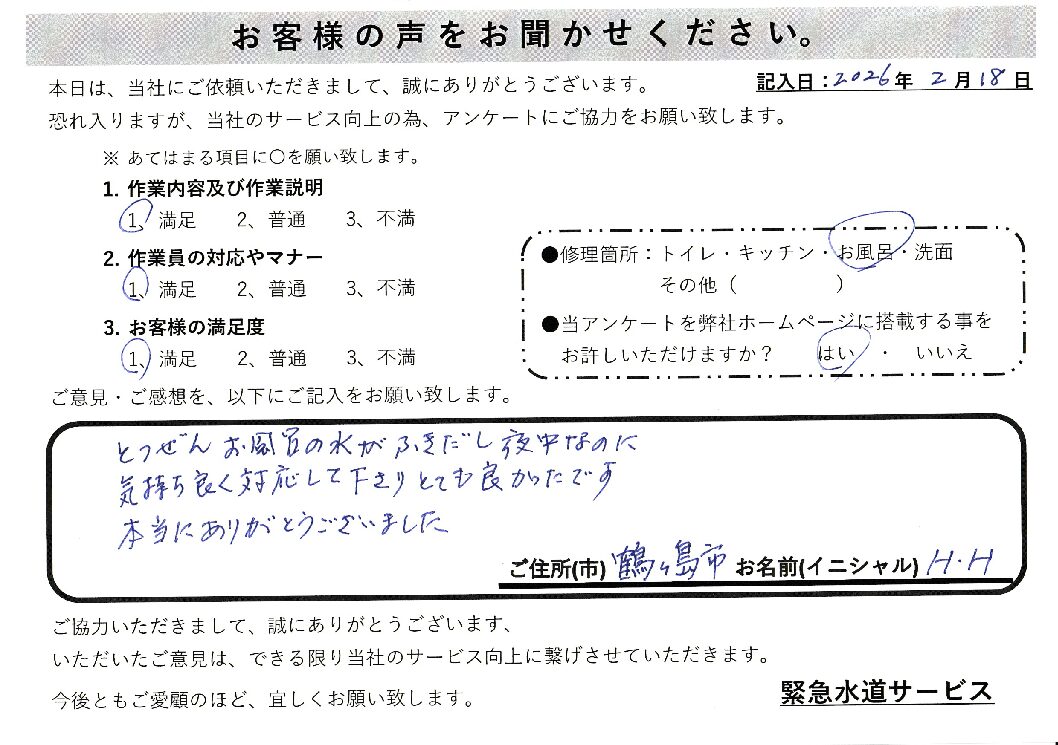 お客様の声をお聞かせください。
本日は、当社にご依頼いただきまして、誠にありがとうございます。
記入日：2026年 2月18日
恐れ入りますが、当社のサービス向上の為、アンケートにご協力をお願い致します。
※ あてはまる項目に〇を願い致します。
1. 作業内容及び作業説明
1、満足 2、普通 3、不満
2. 作業員の対応やマナー
1、満足 2、普通 3、不満
3. お客様の満足度
1、満足 2、普通 3、不満
●修理箇所：トイレ・キッチン・お風呂・洗面
その他（ ）
●当アンケートを弊社ホームページに搭載する事を
お許しいただけますか？ はい ・ いいえ
ご意見・ご感想を、以下にご記入をお願い致します。
とつぜん お風呂の水がふきだし 夜中なのに
気持ち良く対応して下さりとても良かったです
本当にありがとうございました
ご住所(市) 鶴ヶ島市 お名前(イニシャル) H・H
ご協力いただきまして、誠にありがとうございます、
いただいたご意見は、できる限り当社のサービス向上に繋げさせていただきます。
今後ともご愛顧のほど、宜しくお願い致します。
緊急水道サービス